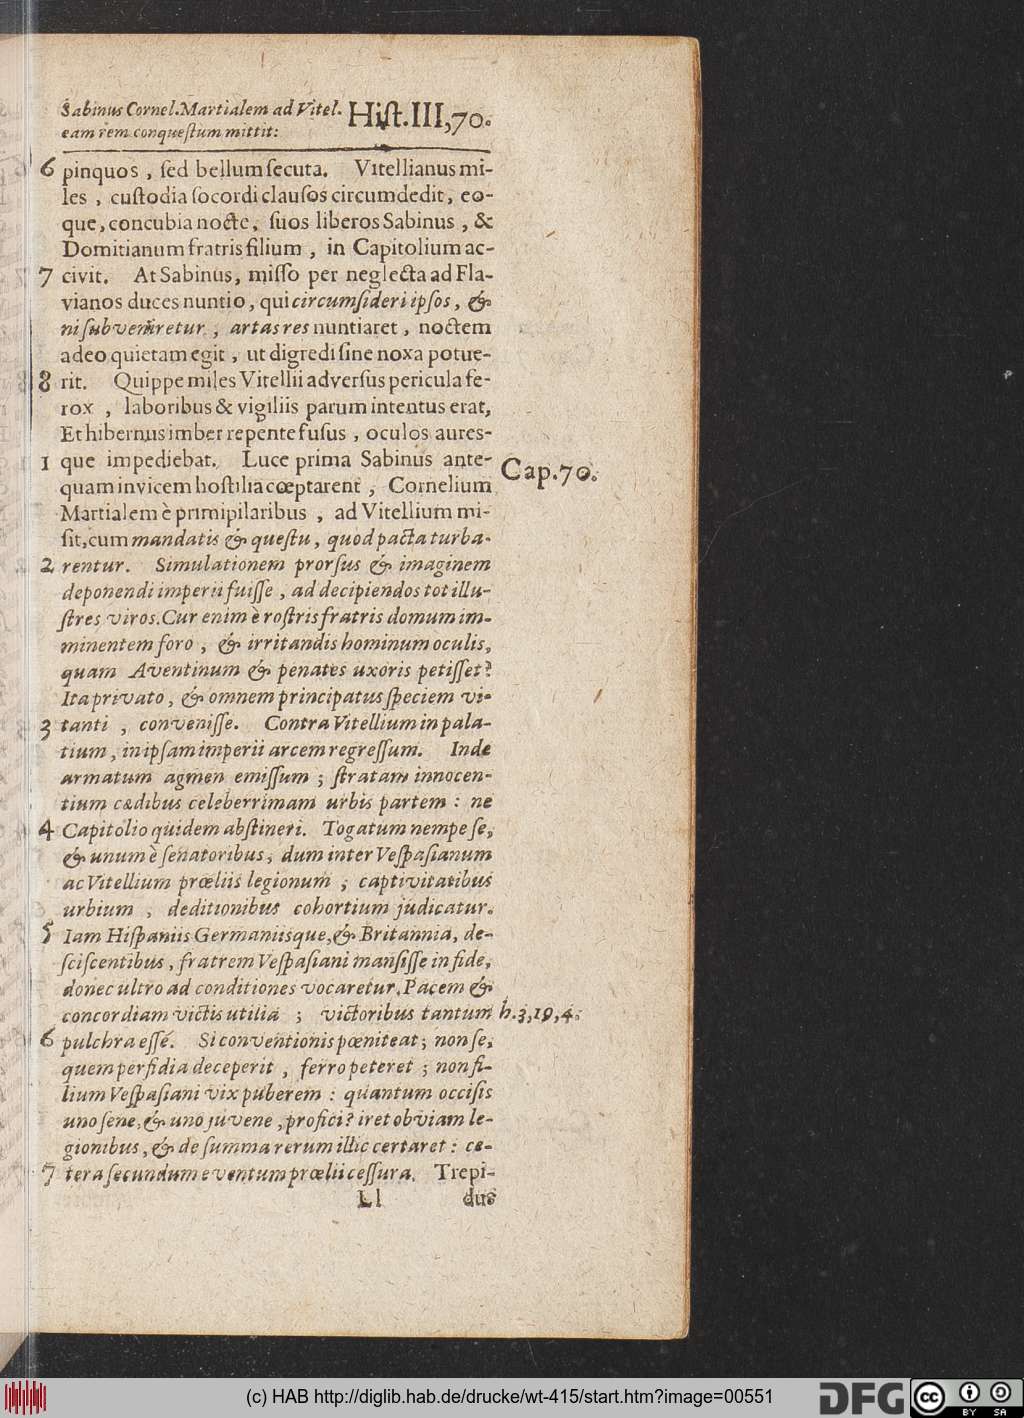 Sabinus Cornel. Martialem ad Vitel. Hist. III, 70.
eam rem conquestum mittit:
6 pinquos, sed bellum secuta. Vitellianus mi-
les, custodia socordi clausos circumdedit, eo-
que, concubia nocte, suos liberos Sabinus, &
Domitianum fratris filium, in Capitolium ac-
7 civit. At Sabinus, misso per neglecta ad Fla-
vianos duces nuntio, qui circumsideri ipsos, &
ni subveniretur, artas res nuntiaret, noctem
adeo quietam egit, ut digredi sine noxa potue-
8 rit. Quippe miles Vitellii adversus pericula fe-
rox, laboribus & vigiliis parum intentus erat,
Et hibernus imber repente fusus, oculos aures-
1 que impediebat. Luce prima Sabinus ante- Cap. 70.
quam invicem hostilia cœptarent, Cornelium
Martialem è primipilaribus, ad Vitellium mi-
sit, cum mandatis & questu, quod pacta turba-
2 rentur. Simulationem prorsus & imaginem
deponendi imperii fuisse, ad decipiendos tot illu-
stres viros. Cur enim è rostris fratris domum im-
minentem foro, & irritandis hominum oculis,
quam Aventinum & penates uxoris petisset?
Ita privato, & omnem principatus speciem vi-
3 tanti, convenisse. Contra Vitellium in pala-
tium, in ipsam imperii arcem regressum. Inde
armatum agmen emissum; stratam innocen-
tium cædibus celeberrimam urbis partem: ne
4 Capitolio quidem abstineri. Togatum nempe se,
& unum è senatoribus, dum inter Vespasianum
ac Vitellium prœliis legionum, captivitatibus
urbium, deditionibus cohortium judicatur.
5 Iam Hispaniis Germaniisque, & Britannia, de-
sciscentibus, fratrem Vespasiani mansisse in fide,
donec ultro ad conditiones vocaretur. Pacem &
concordiam victis utilia; victoribus tantum h. 3, 19, 4.
6 pulchra esse. Si conventionis pœniteat; non se,
quem perfidia deceperit, ferro peteret; non fi-
lium Vespasiani vix puberem: quantum occisis
uno sene, & uno juvene, profici? iret obviam le-
gionibus, & de summa rerum illic certaret: ce-
7 tera secundum eventum prœlii cessura. Trepi-
Ll dus
(c) HAB http://diglib.hab.de/drucke/wt-415/start.htm?image=00551
DFG
cc BY SA